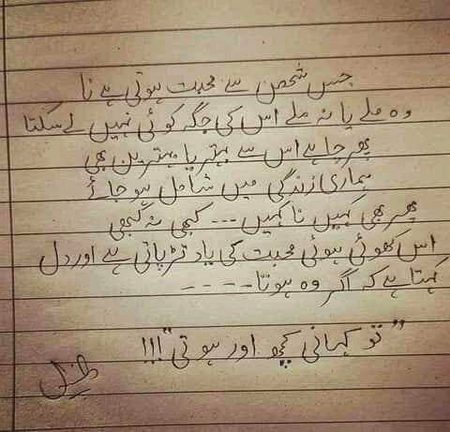 جس شخص سے محبت ہوتی ہے نا
وہ ملے یا نہ ملے اس کی جگہ کوئی نہیں لے سکتا
پھر چاہے اس سے بہتر یا بہترین بھی
ہماری زندگی میں شامل ہو جائے
پھر بھی کہیں نا کہیں --- کبھی نہ کبھی
اس کھوئی ہوئی محبت کی یاد تڑپاتی ہے اور دل
کہتا ہے کہ اگر وہ ہوتا - - - -
"تو کہانی کچھ اور ہوتی"!!!